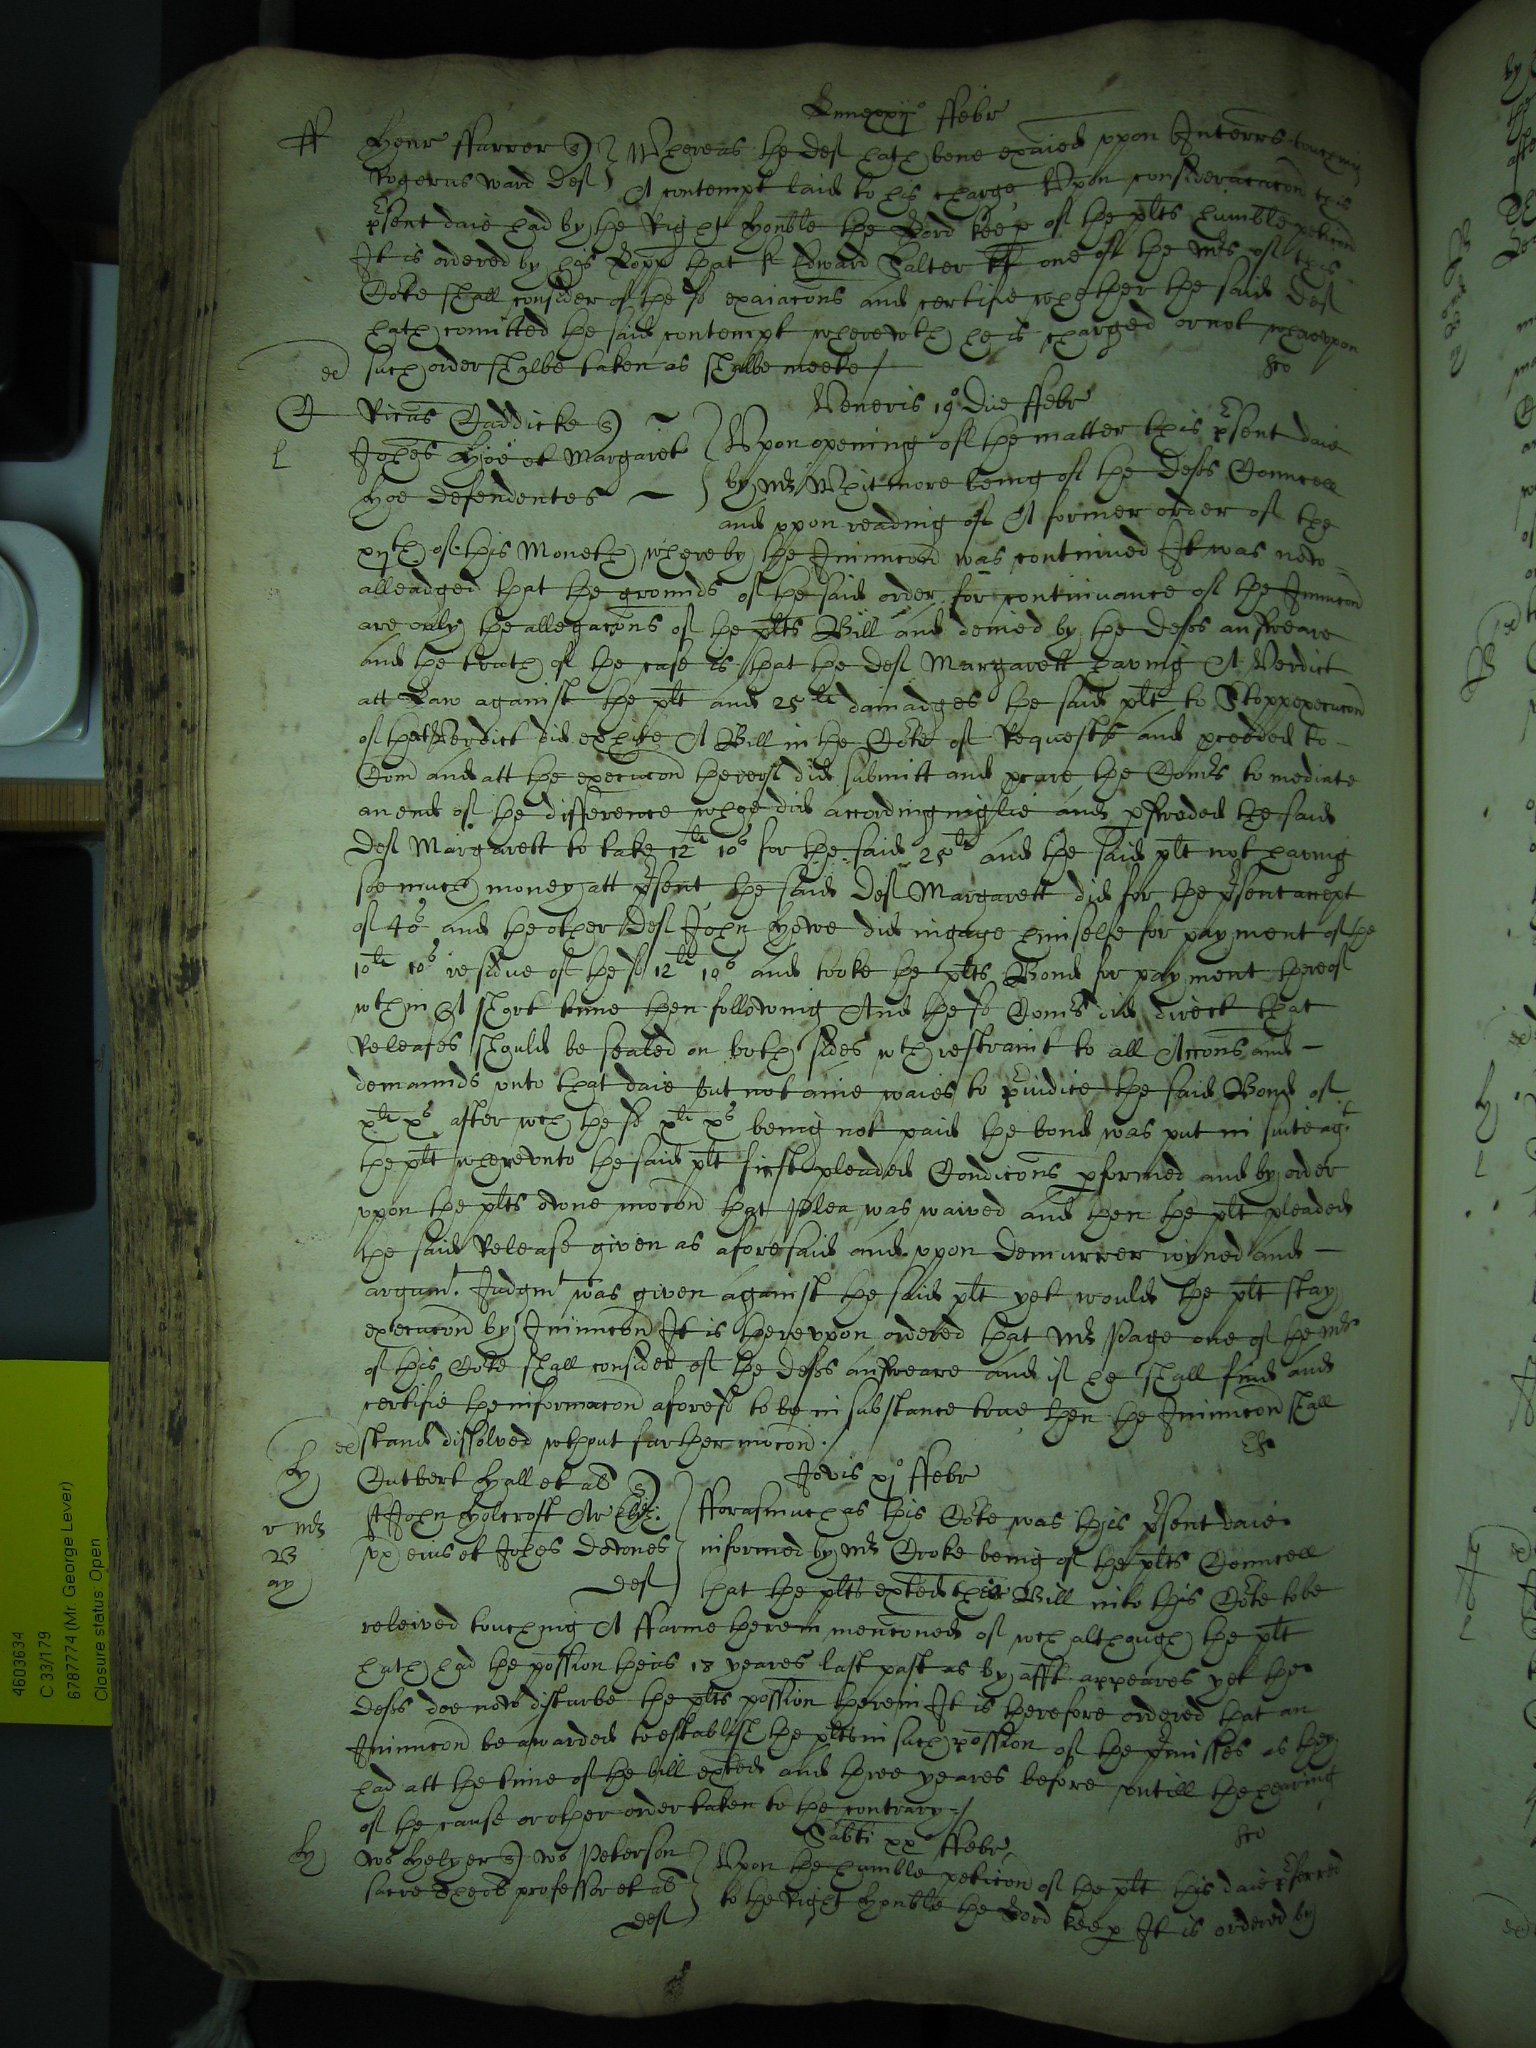 Lune xxij° ffebr
ff Henr ffarrer q Whereas the deft hath bene exaied uppon Interrs touching
Rogerus Ward deft A contempt laid to his charge, Upon consideracon this
psent daie had by the Right Honble the Lord keep of the plts humble peticon
It is ordered by his Lopp that Sr Edward Salter kt one of the Mrs of this
Co:te shall consider of the sd exaiacons and certifie whether the said deft
hath comitted the said contempt wherewth he is charged or not whereupon
ex such order shalbe taken as shalbe meete /
Veneris 19° Die ffebr
C Ricus Caddicke q Upon opening of the matter this psent daie
L Johes Hoe et Margaret by Mr Whitmore being of the defts Councell
Hoe defendentes and uppon reading of A former order of the
xjth of this Moneth whereby the Iniunccon was continued It was now
alleadged that the grounds of the said order for continuance of the Iniuncon
are only the allegacons of the plts Bill and denied by the defts answeare
and the truth of the case is that the deft Margarett having A Verdict
att Law against the plt and 25li damadges the said plt to stopp execucon
of that Verdict did exhibite A Bill in the Co:te of Requests and pceeded to
Com and att the execucon thereof did submitt and pcure the Comrs to mediate
an end of the difference whoe did accordingnglie and pswaded the said
deft Margarett to take 12li 10s for the said 25li and the said plt not having
soe much money att psent, the said deft Margarett did for the psent accept
of 40s and the other deft John Howe did ingage himselfe for payment of the
10li 10s residue of the sd 12li 10s and tooke the plts Bond for payment thereof
wthin A short time then following And the sd Comrs did direct that
Releases should be sealed on both sides wth restraint to all Accons and
demaunds unto that daie but not anie waies to preiudice the said Bond of
xli xs after wch the sd xli xs being not paid the bond was put in suite agt
the plt whereunto the said plt first pleaded Condicons pformed and by order
upon the plts owne mocon that plea was waived and then the plt pleaded
the said Release given as aforesaid and uppon Demurrer ioyned and
argumt Judgmt was given against the said plt yet would the plt stay
execucon by Iniuncon It is thereuppon ordered that Mr Page one of the Mrs
of this Co:te shall consider of the defts answeare and if he shall find and
certifie the informacon aforesd to be in substance true then the Iniuncon shall
ex stand dissolved wthout further mocon.
Jovis xj° ffebr
Hy Cutbert Hall et al q
r Mr Sr John Holcroft Ar Eliz: fforasmuch as this Co:te was this psent daie
ux eius et Johes Detones informed by Mr Crooke being of the plts Councell
deft that the plts exhted their Bill into this Co:te to be
releived touching A ffarme therein menconed of wch although the plt
hath had the possion theis 18 yeares last past as by afft appeares yet the
defts doe now disturbe the plts possion therein It is therefore ordered that an
Iniuncon be awarded to establish the plts in such possion of the pmisses as they
had att the time of the bill exhted and three yeares before untill the hearing
of the cause or other order taken to the contrary /
Sabti xx° ffebr
Hy Ws Helyer q Ws Peterson Upon the humble peticon of the plt this daie pferred
sacre theol professor et al to the Right Honble the Lord keep It is ordered by
deft
4603634
C 33/179
6787774 (Mr. George Lever)
Closure status: Open